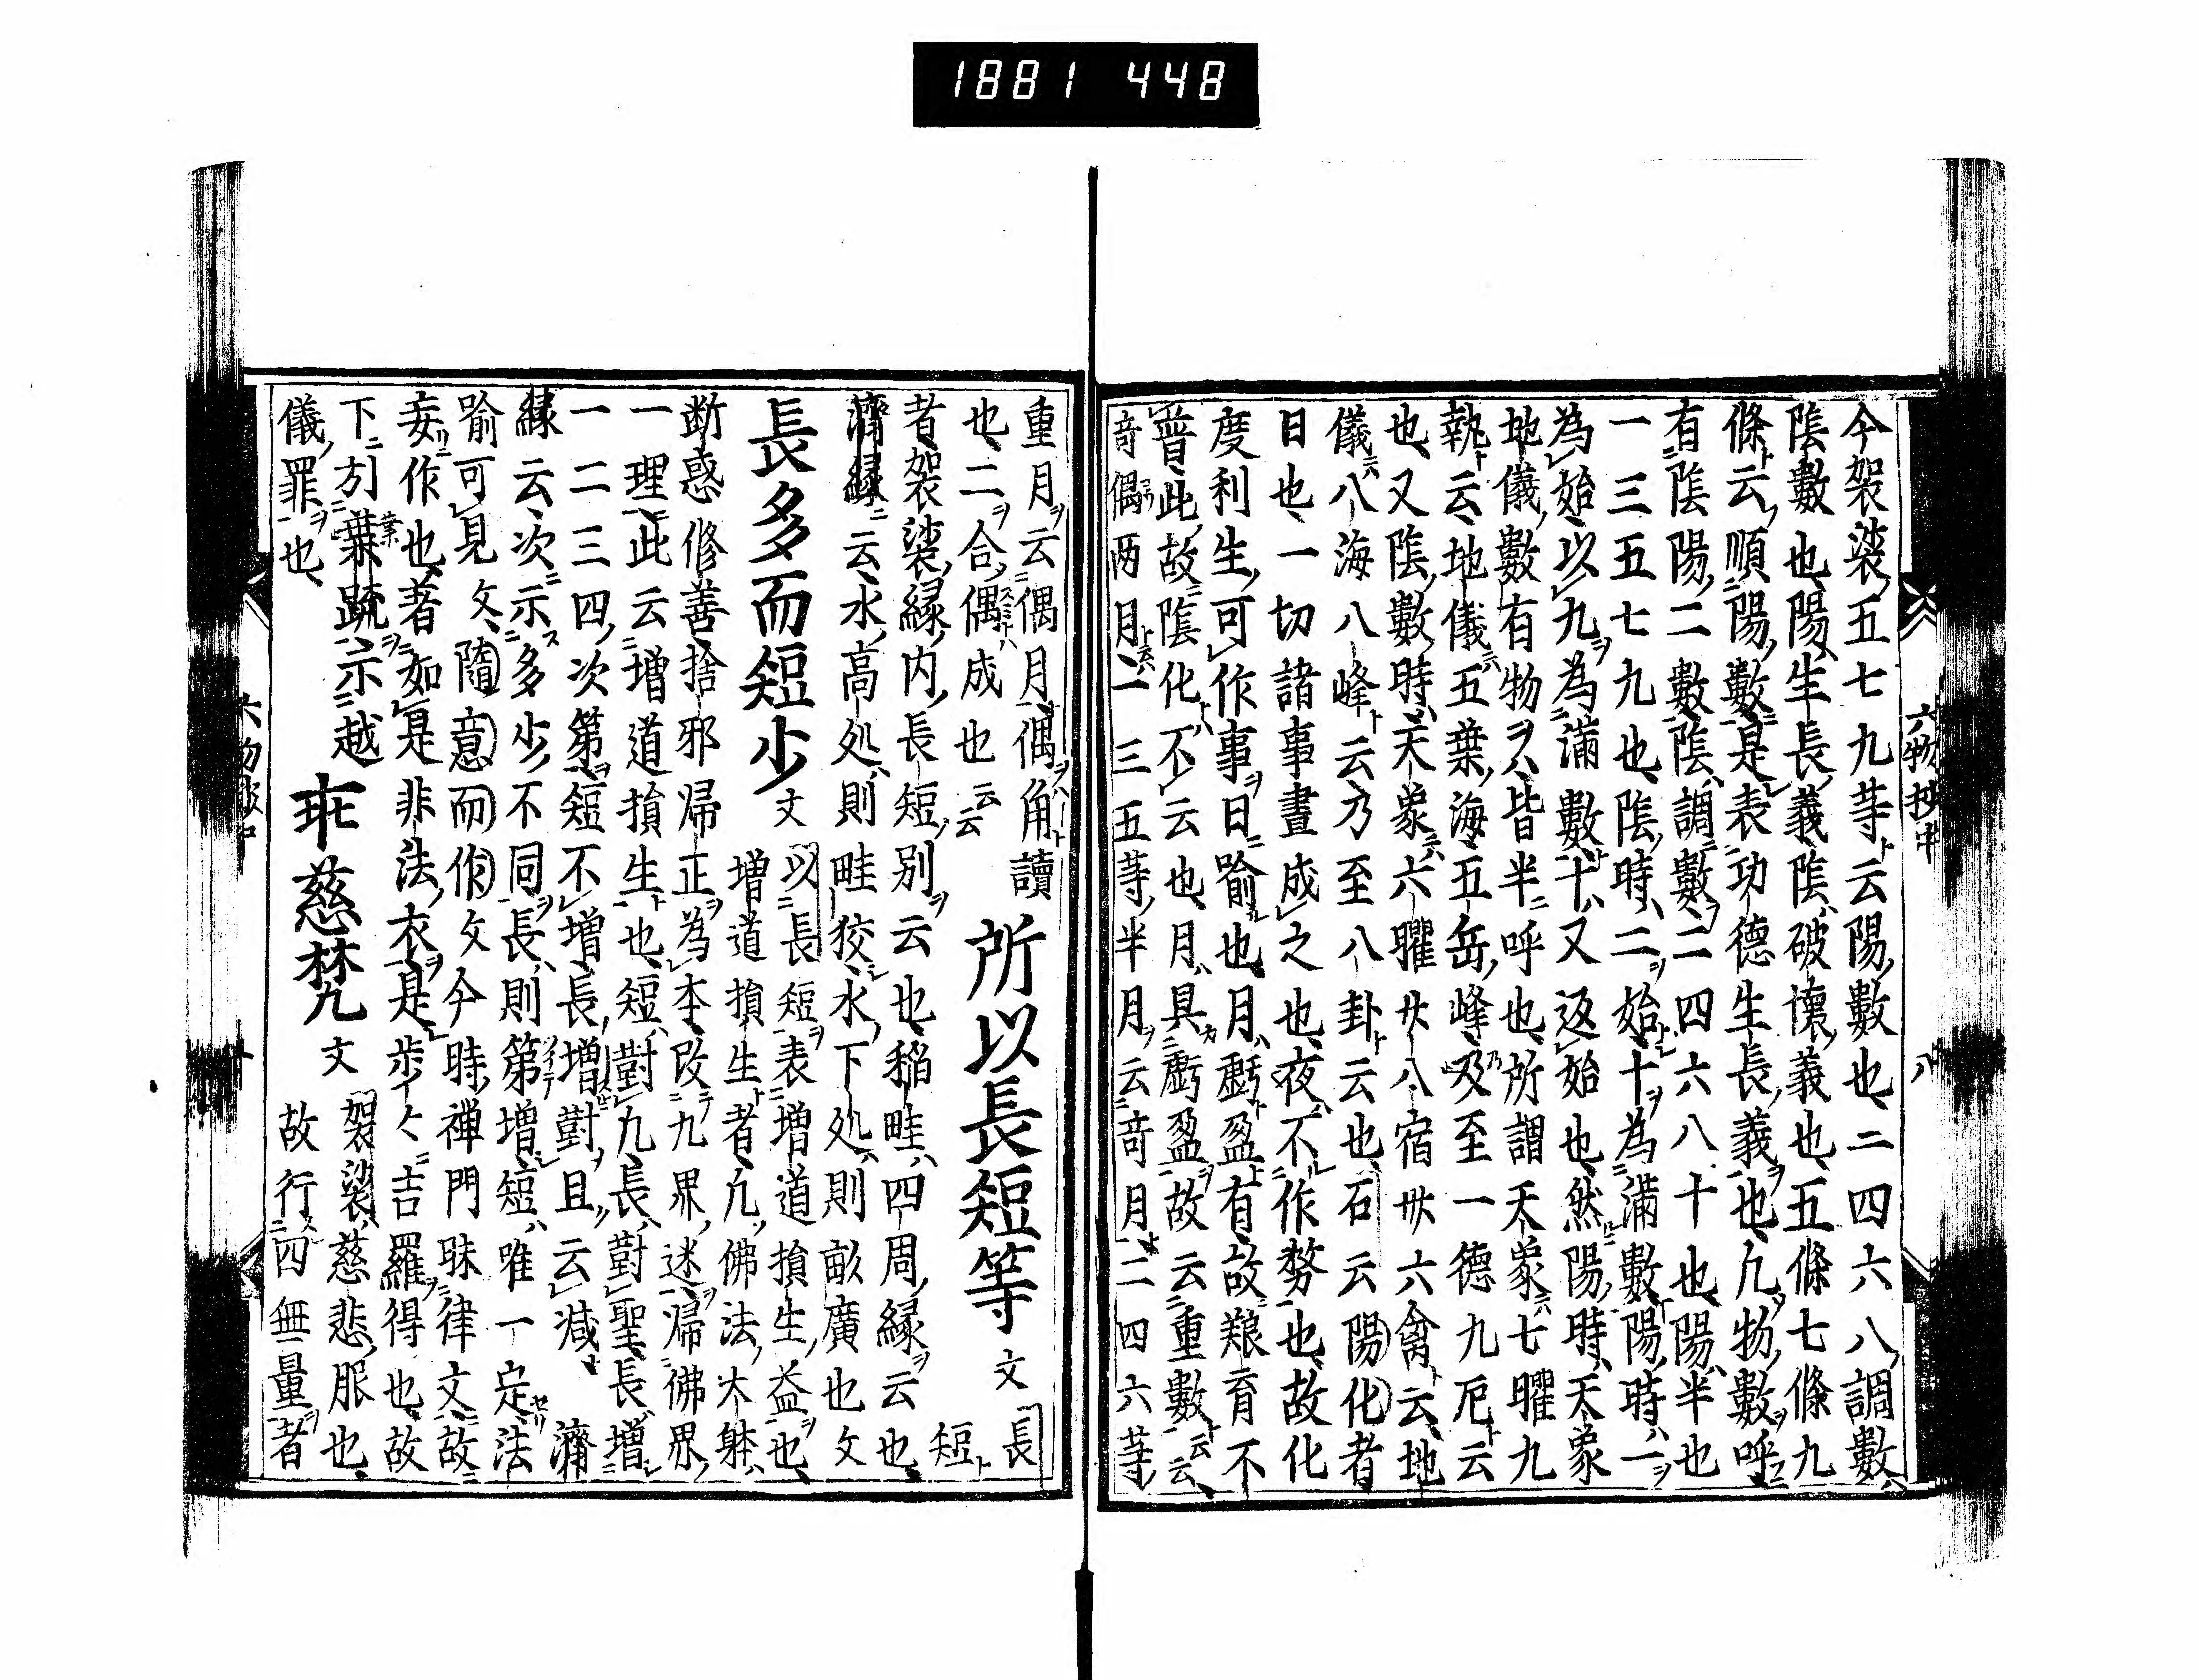 1881 448
今袈裟五七九䒭云陽數也二四六八調數
陰數也陽生長義陰破壞義也五條七條九
條云順陽數是表功德生長義也凢物數呼
有陰陽二數陰調數二四六八十也陽半也
一三五七九也陰時二始十為滿數陽時一
為始以九為滿數十又返始也然陽時天象
地儀數有物ヲハ皆半呼也所謂天象七曜九
執云地儀五葉海五岳峰乃至一德九厄云
也又陰數時天象六曜廿八宿卅六禽云地
儀八海八峰云乃至八卦云也石云陽化者
日也一切諸事晝成之也夜不作務也故化
度利生可作事日喻也月虧盈有故粮育不
普此故陰化不云也月具虧盈故云重數云云
竒偶两月一三五䒭半月云竒月二四六䒭
重月云偶月偶角讀　所以長短等　文　長短
也二合偶成也云云
者袈裟緣内長短別云也稲畦四周緣云也
濟緣云水高処則畦狡水下処則畝廣也文
長多而短少　文　以長短表増道損生益也
増道損生者凢佛法大躰
断惑修善捨邪帰正為本改九界迷帰佛界
一理此云増道損生也短對九長對聖長増
一二三四次第短不増長増對且云减　濟
緣云次示多少不同長則第増短唯一定法
喻可見文隨意而作文今時禅門昧律文故
妄作也著如是非法衣是步々吉羅得也故
下刻葉䟽示越　乖慈梵九　文　袈裟慈悲服也
儀罪也　故行四無量者
六物抄中　八